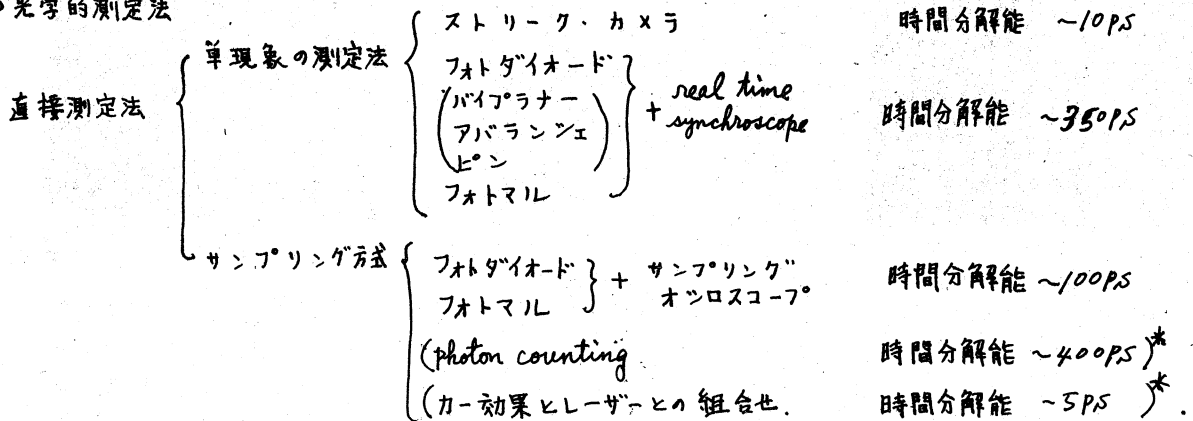 光学的測定法
直接測定法
単現象の測定法
ストリーク・カメラ 時間分解能 ~10PS
フォトダイオード
(バイプラナー
アバランシェ
ピン)
フォトマル
+ real time
synchroscope 時間分解能 ~350PS
サンプリング方式
フォトダイオード
フォトマル
+ サンプリング
オシロスコープ 時間分解能 ~100PS
(photon counting 時間分解能 ~400PS)*
(カー効果とレーザーとの組合せ. 時間分解能 ~5PS )*.